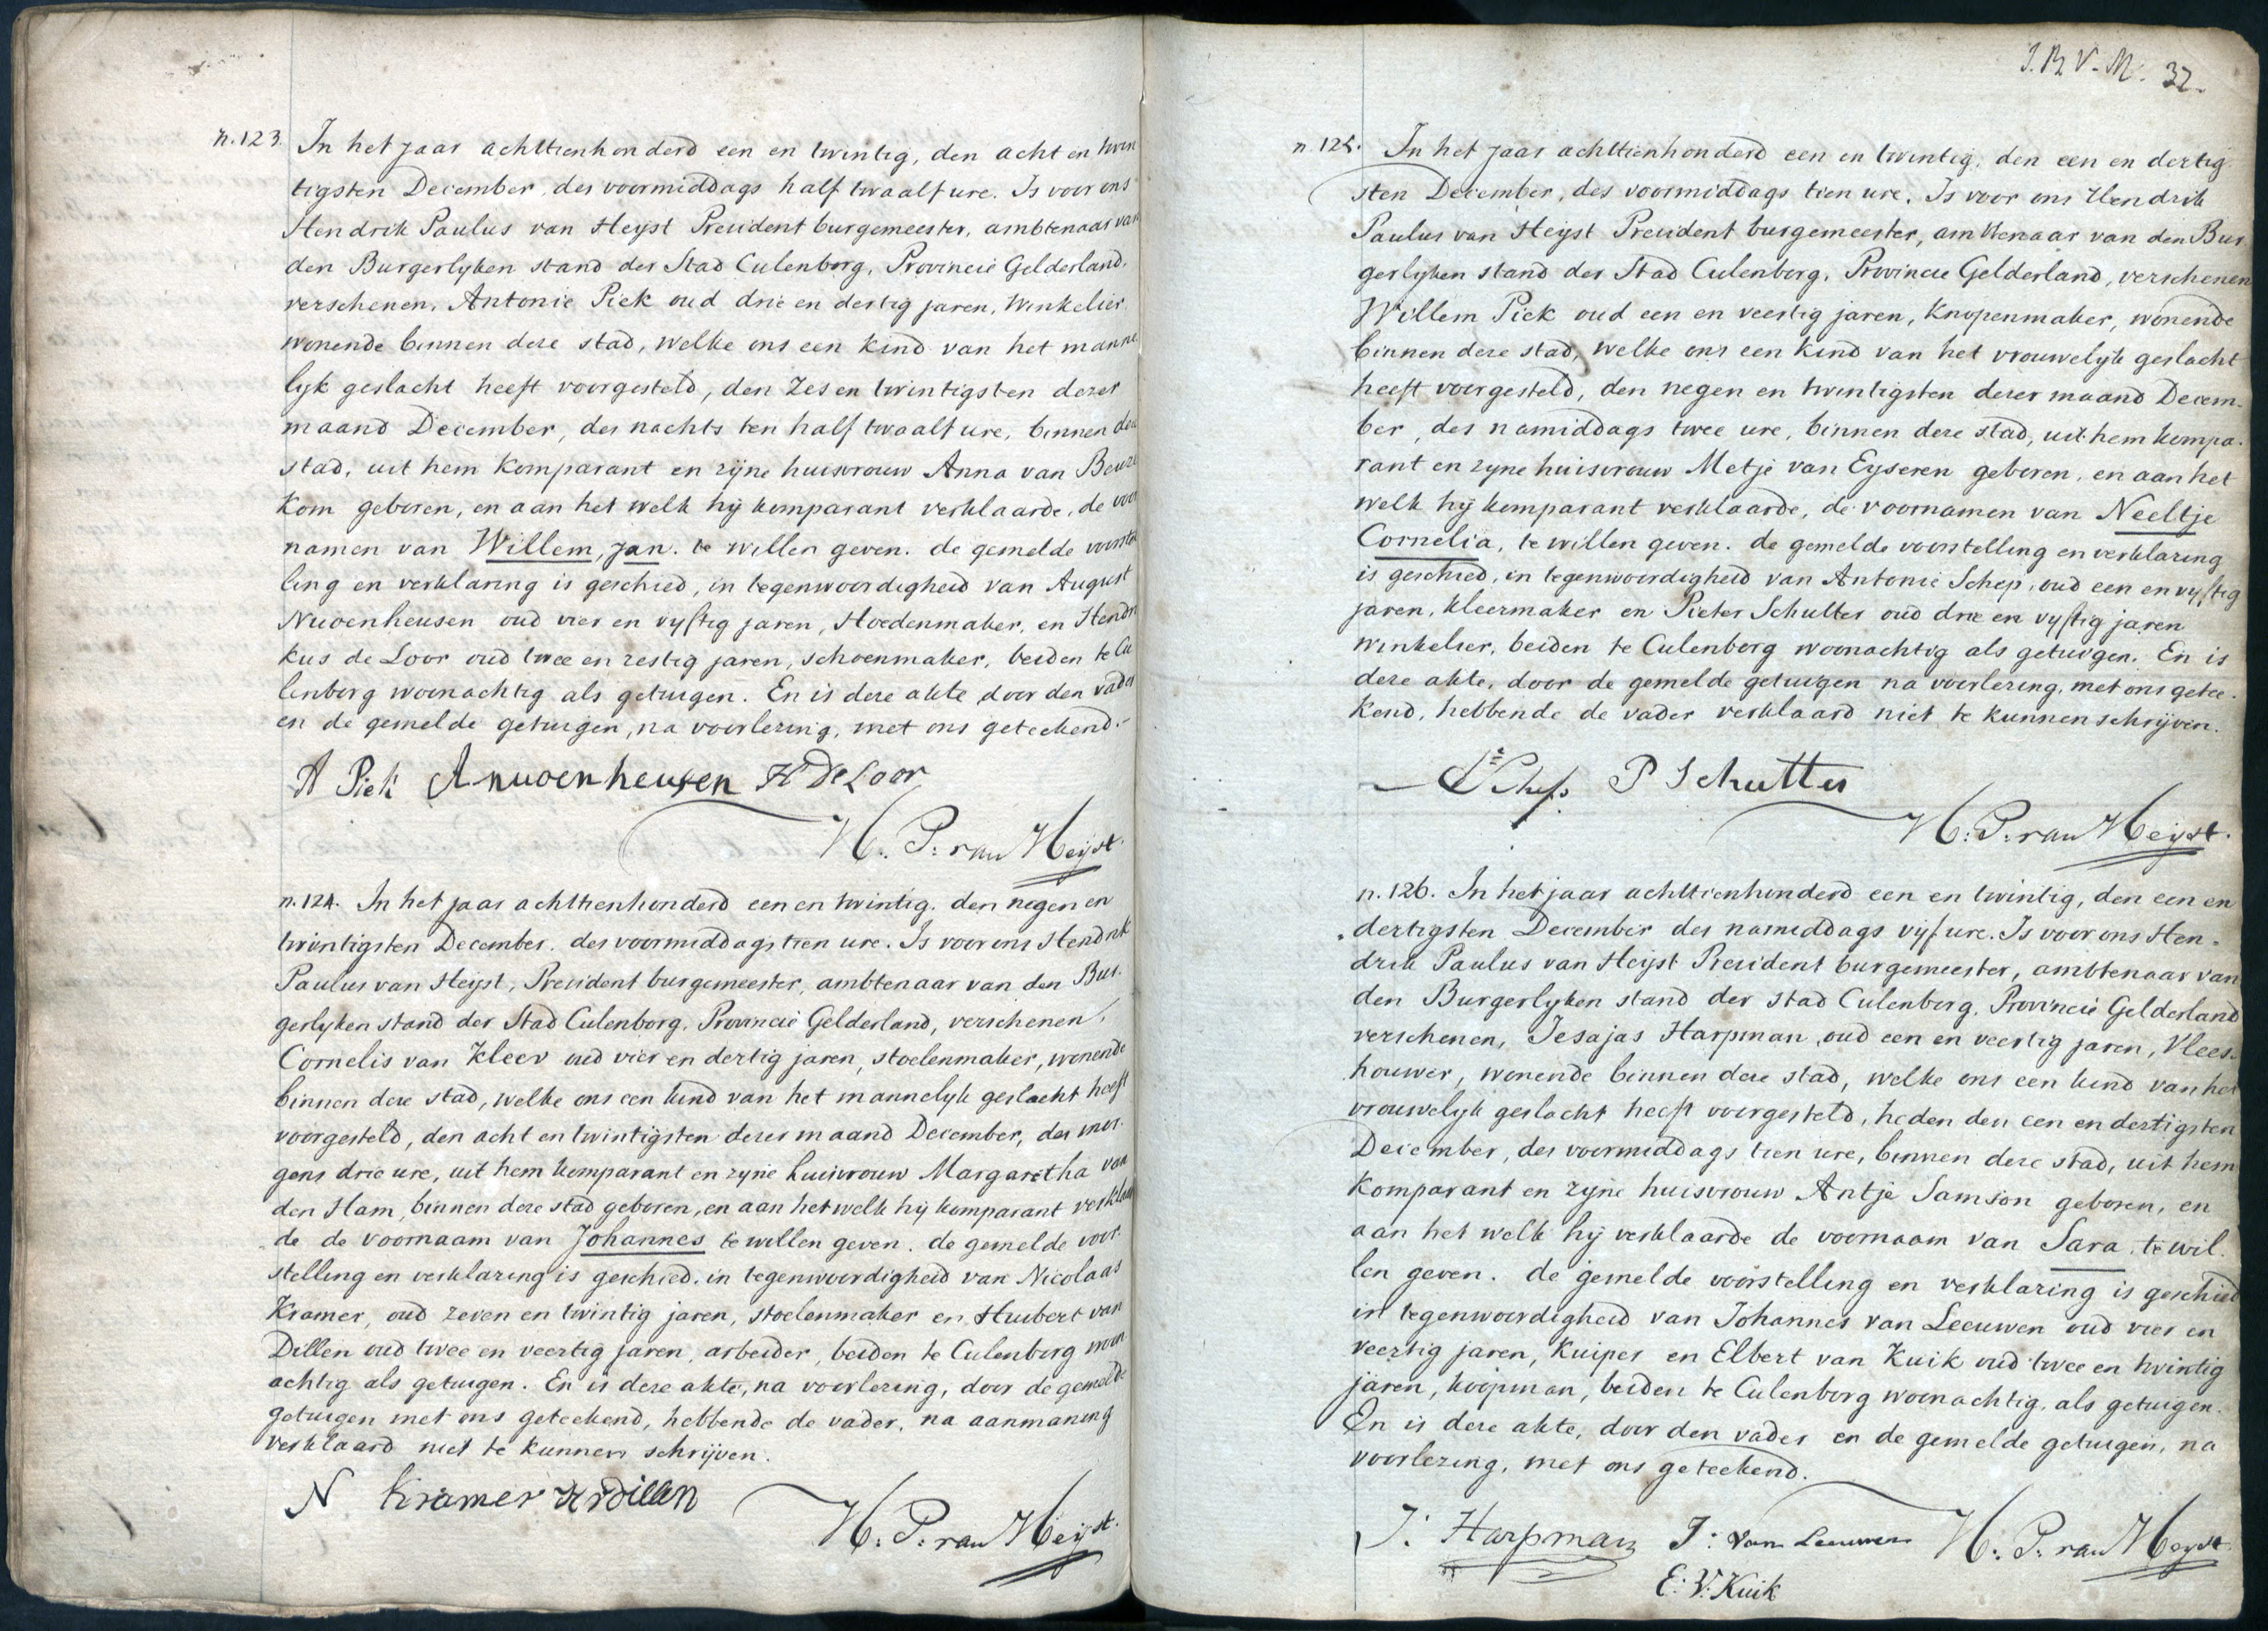 n. 123. In het jaar achttienhonderd een en twintig, den acht en twin
tigsten December, des voormiddags half twaalf ure. Is voor ons
Hendrik Paulus van Heijst President burgemeester, ambtenaar van
den Burgerlyken stand der Stad Culenborg, Provincie Gelderland,
verschenen, Antonie Piek oud drie en dertig jaren, Winkelier,
wonende binnen deze stad, welke ons een kind van het manne
lyk geslacht heeft voorgesteld, den zes en twintigsten dezer
maand December, des nachts ten half twaalf ure, binnen deze
stad, uit hem komparant en zijne huisvrouw Anna van Beuze
kom geboren, en aan het welk hij komparant verklaarde, de voor
namen van Willem, Jan. te willen geven. de gemelde voorstel
ling en verklaring is geschied, in tegenwoordigheid van August
Nuvenheusen oud vier en vyftig jaren, Hoedenmaker, en Hendri
kus de Loor oud twee en zestig jaren, schoenmaker, beiden te Cu
lenborg woonachtig als getuigen. En is deze akte door den vader
en de gemelde getuigen, na voorlezing, met ons geteekend.
A Piek Anuvenheusen H De Loor
H. P. van Heijst.
n. 124. In het jaar achttienhonderd een en twintig. den negen en
twintigsten December. des voormiddags tien ure. Is voor ons Hendrik
Paulus van Heijst, President burgemeester, ambtenaar van den Bur.
gerlyken stand der Stad Culenborg, Provincie Gelderland, verschenen,
Cornelis van Kleev oud vier en dertig jaren, stoelenmaker, wonende
binnen deze stad, welke ons een kind van het mannelyk geslacht heeft
voorgesteld, den acht en twintigsten dezer maand December, des mor.
gens drie ure, uit hem komparant en zyne huisvrouw Margaretha van
den Ham, binnen deze stad geboren, en aan het welk hij komparant verklaar
de de voornaam van Johannes te willen geven. de gemelde voor
stelling en verklaring is geschied, in tegenwoordigheid van Nicolaas
Kramer, oud zeven en twintig jaren, stoelenmaker en Huibert van
Dillen oud twee en veertig jaren, arbeider, beiden te Culenborg woon
achtig als getuigen. En is deze akte, na voorlezing, door de gemelde
getuigen met ons geteekend, hebbende de vader, na aanmaning
verklaard niet te kunnen schrijven.
N Kramer H v dillen
H. P. van Heijst.
J. B. V. M. 32.
n. 125. In het jaar achttienhonderd een en twintig, den een en dertig
sten December, des voormiddags tien ure. Is voor ons Hendrik
Paulus van Heijst President burgemeester, ambtenaar van den Bur
gerlyken stand der Stad Culenborg, Provincie Gelderland, verschenen
Willem Piek oud een en veertig jaren, Knopenmaker, wonende
binnen deze stad, welke ons een kind van het vrouwelyk geslacht
heeft voorgesteld, den negen en twintigsten dezer maand Decem-
ber, des namiddags twee ure, binnen deze stad, uit hem kompa.
rant en zyne huisvrouw Metje van Eyseren geboren, en aan het
welk hij komparant verklaarde, de voornamen van Neeltje
Cornelia, te willen geven. de gemelde voorstelling en verklaring
is geschied, in tegenwoordigheid van Antonie Schep, oud een en vyftig
jaren, kleermaker en Pieter Schutter oud drie en vyftig jaren
winkelier, beiden te Culenborg woonachtig als getuigen. En is
deze akte, door de gemelde getuigen na voorlezing, met ons getee-
kend, hebbende de vader verklaard niet te kunnen schrijven.
Schep P Schutter
H. P. van Heijst.
n. 126. In het jaar achttienhonderd een en twintig, den een en
dertigsten December des namiddags vijf ure. Is voor ons Hen-
drik Paulus van Heijst President burgemeester, ambtenaar van
den Burgerlyken stand der stad Culenborg, Provincie Gelderland
verschenen, Jesajas Harpman oud een en veertig jaren, Vlees-
houwer, wonende binnen deze stad, welke ons een kind van het
vrouwelyk geslacht heeft voorgesteld, heden den een en dertigsten
December, des voormiddags tien ure, binnen deze stad, uit hem
komparant en zyne huisvrouw Antje Samson geboren, en
aan het welk hij verklaarde de voornaam van Sara, te wil.
len geven. de gemelde voorstelling en verklaring is geschied
in tegenwoordigheid van Johannes van Leeuwen oud vier en
veertig jaren, Kuiper en Elbert van Kuik oud twee en twintig
jaren, koopman, beiden te Culenborg woonachtig, als getuigen.
En is deze akte, door den vader en de gemelde getuigen, na
voorlezing, met ons geteekend.
J. Harpman J: Van Leeuwen H. P. van Heyst.
E. V. Kuik